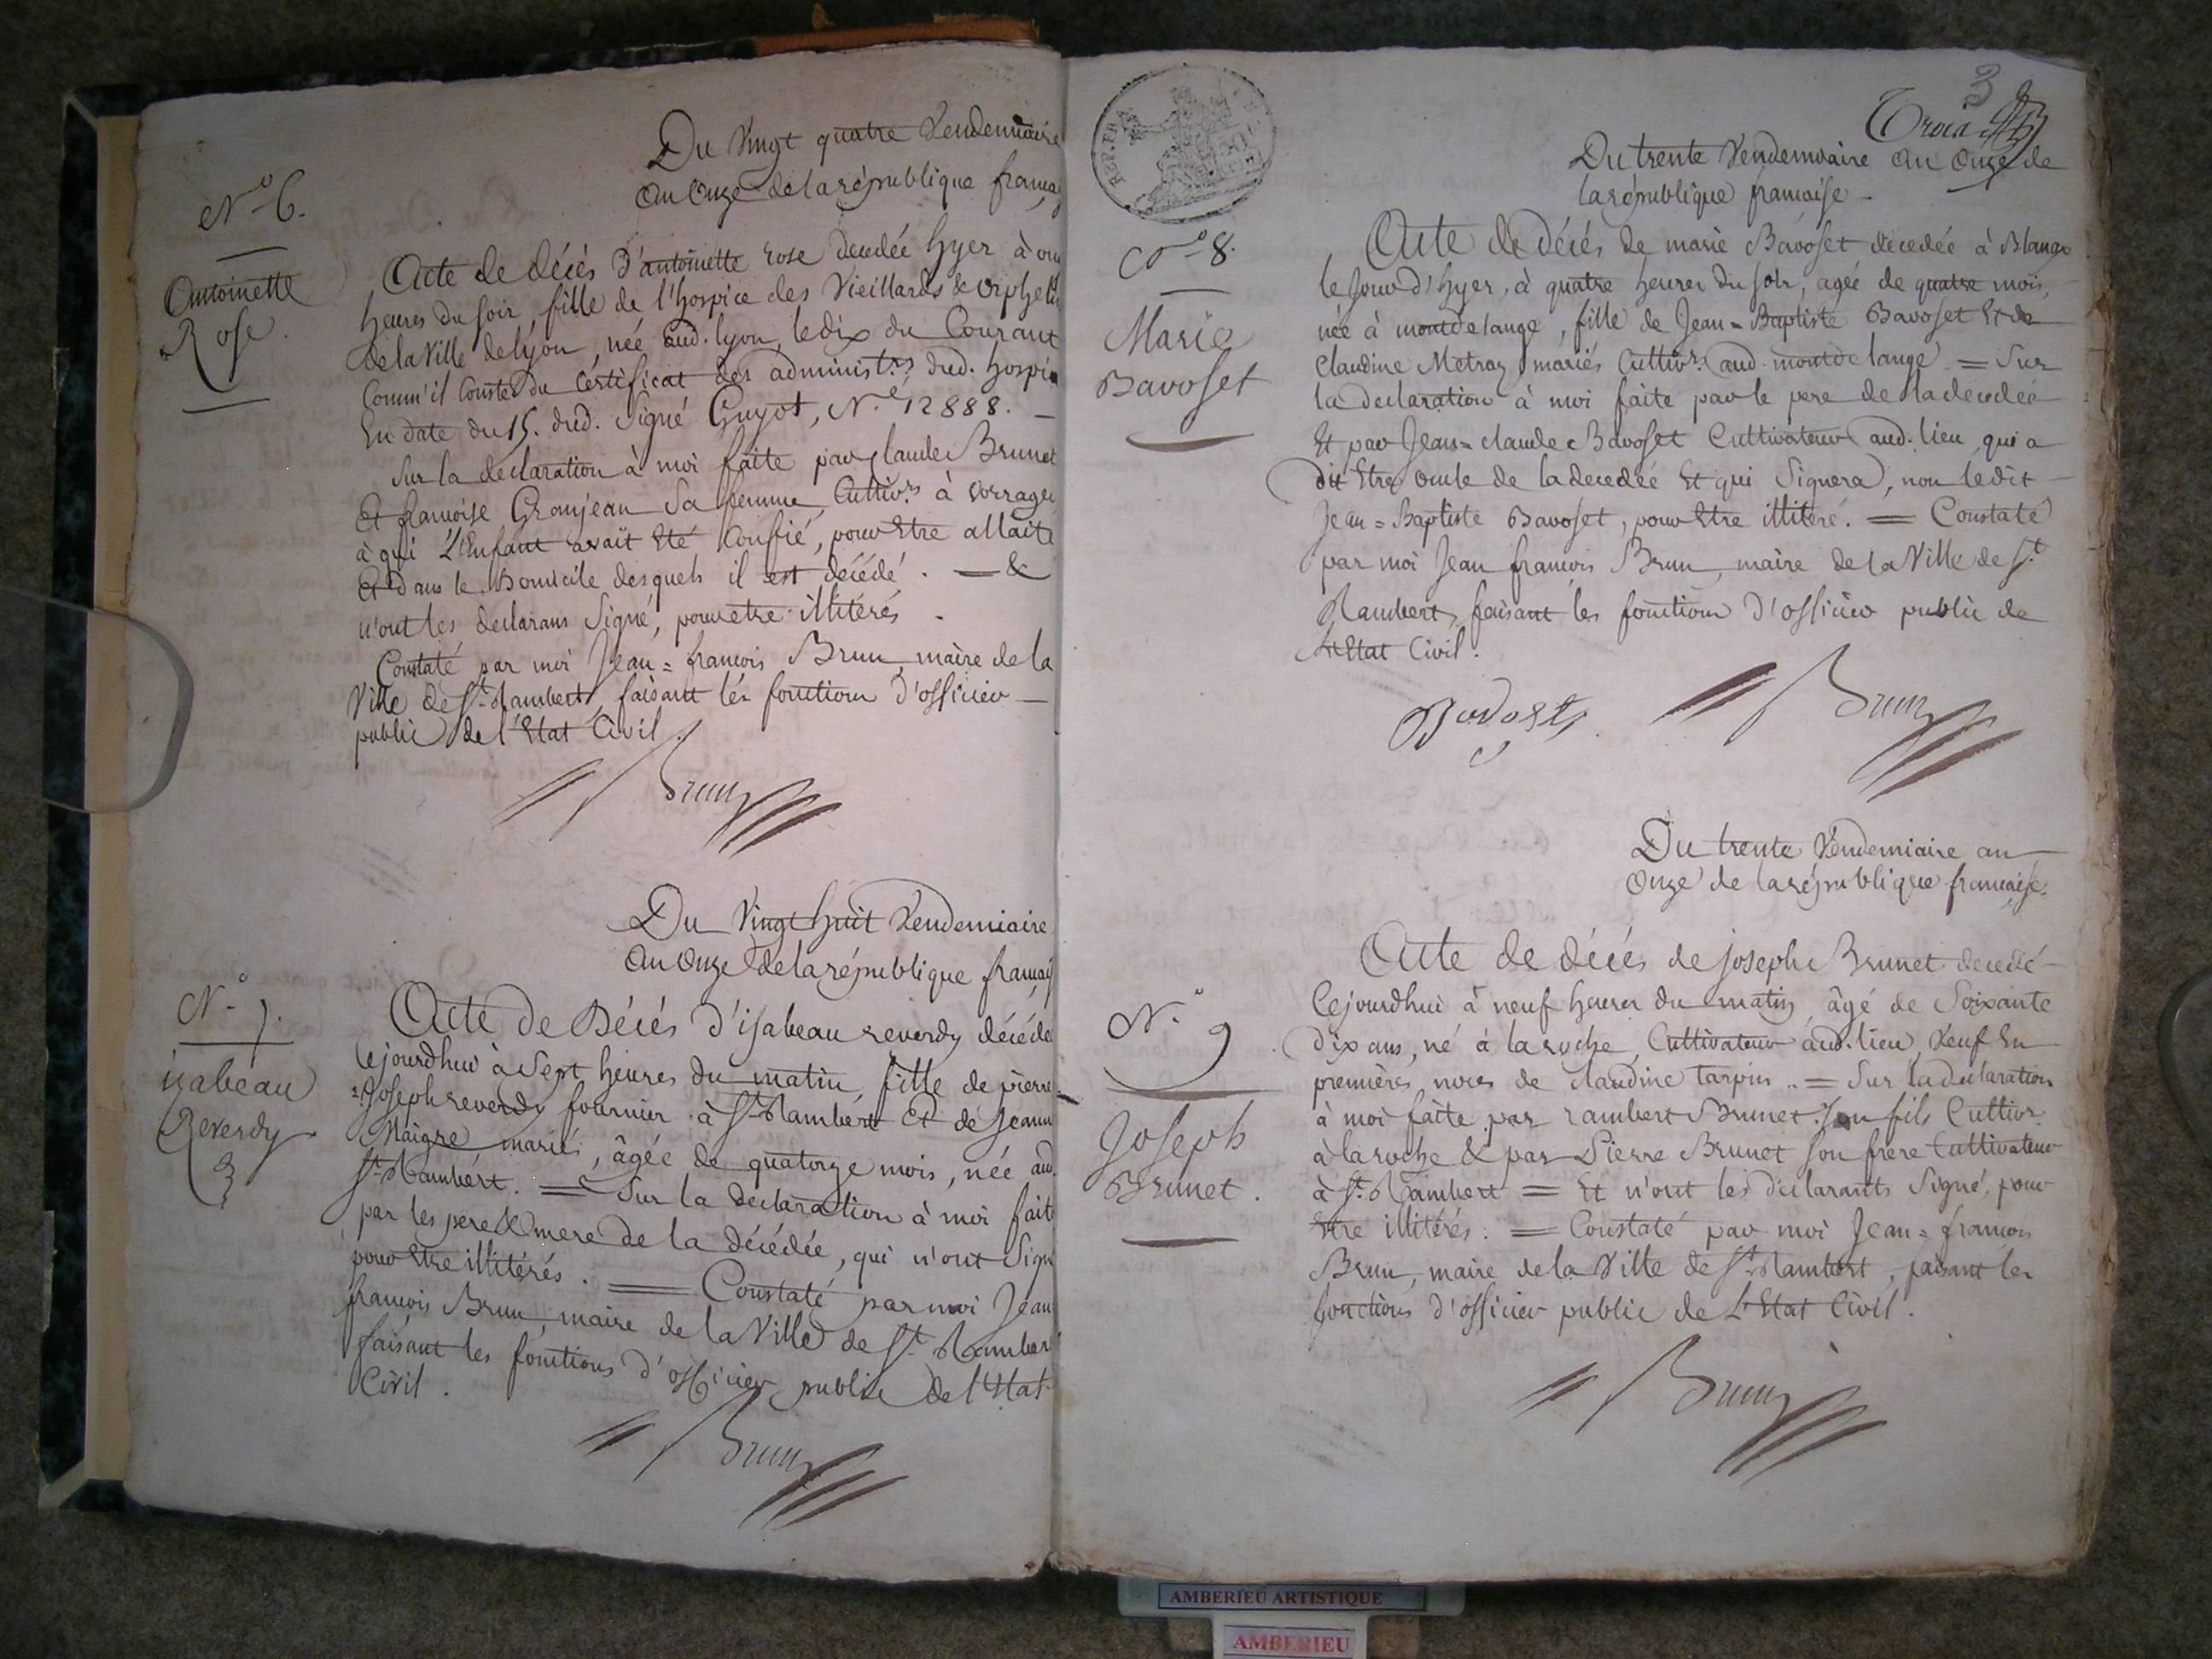 Du Vingt quatre Vendemiaire
an Onze de la république françai
N.o 6.
Antoinette
Rose.
Acte de décés d'antoinette rose decedée hyer à on
heures du soir, fille de l'hospice des Vieillards & orpheli
de la Ville de lyon, née aud. lyon, le dix du Courant
Comm'il Conste du Certificat des administ.rs dud. hospi
En date du 15. dud. Signé Guyot, N.o 12888. —
Sur la declaration à moi faite par Claude Brunet
Et françoise Granjean Sa femme, Cultiv.rs à Vorrages
à qui L'Enfant avait Eté Confié, pour Etre allaité
Et Dans le Domicile desquels il est décédé. — &
n'ont les declarans Signé, pour etre illitérés.
Constaté par moi Jean = françois Brun, maire de la
Ville de St. Rambert, faisant les fonctions d'officier —
public de l'Etat Civil.
Brun
Du Vingt huit Vendemiaire
an Onze de la république françaiş
N.o 7.
isabeau
Reverdy
Acte de Décés d'isabeau reverdy décédé
Cejourdhui à Sept heures du matin, fille de pierre
= Joseph reverdy fournier à St. Rambert Et de Jeann
Maigre mariés, âgée de quatorze mois, née aud.
St. Rambert. = Sur la declaration à moi faite
par les pere & mere de la décédée, qui n'ont Sign
pour Etre illitérés. = Constaté par moi Jean
françois Brun, maire de la Ville de St. Rambert
faisant les fonctions d'officier public de l'Etat
Civil.
Brun
3
Trois
REP. FRA
Du trente Vendemiaire an Onze de
la république française —
N.o 8.
Marie
Bavoset
Acte de décés de marie Bavoset decedée à Blanas
le Jour d'hyer, à quatre heures du soir, agée de quatre mois,
née à montdelange, fille de Jean = Baptiste Bavoset Et de
Claudine Metraz mariés Cultiv.rs aud. montdelange = Sur
la declaration à moi faite par le pere de la decedée
Et par Jean = claude Bavoset Cultivateur aud. lieu qui a
dit Etre oncle de la decedée Et qui Signera, non ledit
Jean = Baptiste Bavoset, pour Etre illitéré. = Constaté
par moi Jean françois Brun, maire de la Ville de St.
Rambert, faisant les fonctions d'officier public de
l'Etat Civil.
Bavoset
Brun
Du trente Vendemiaire an
Onze de la république française.
N.o 9
Joseph
Brunet.
Acte de décés de joseph Brunet decedé
Cejourdhui à neuf heures du matin, âgé de Soixante
dix ans, né à la roche, Cultivateur aud. lieu, Veuf En
premières noces de claudine tarpin.. = Sur la declaration
à moi faite par rambert Brunet Son fils Cultivr.
à la roche & par Pierre Brunet Son frere Cultivateur
à St. Rambert = Et n'ont les declarants Signé, pour
Etre illitérés. = Constaté par moi Jean = françois
Brun, maire de la Ville de St. Rambert, faisant les
fonctions d'officier public de L'Etat Civil.
Brun
AMBERIEU ARTISTIQUE
AMBERIEU